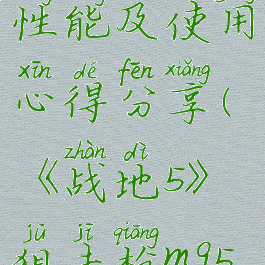 性能及使用
xīn dé fēn xiǎng
心得分享(
zhàn dì
《战地5》
jū jī qiāng
狙击枪m95